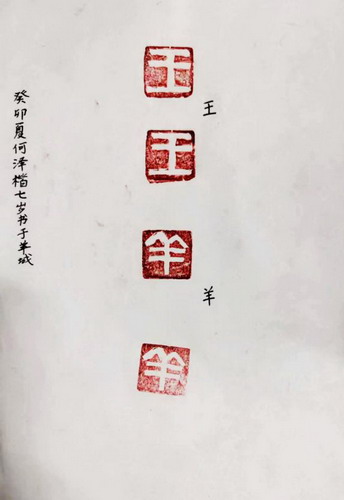 王
王
羊
羊
王
羊
癸卯夏何泽楷七岁书于羊城